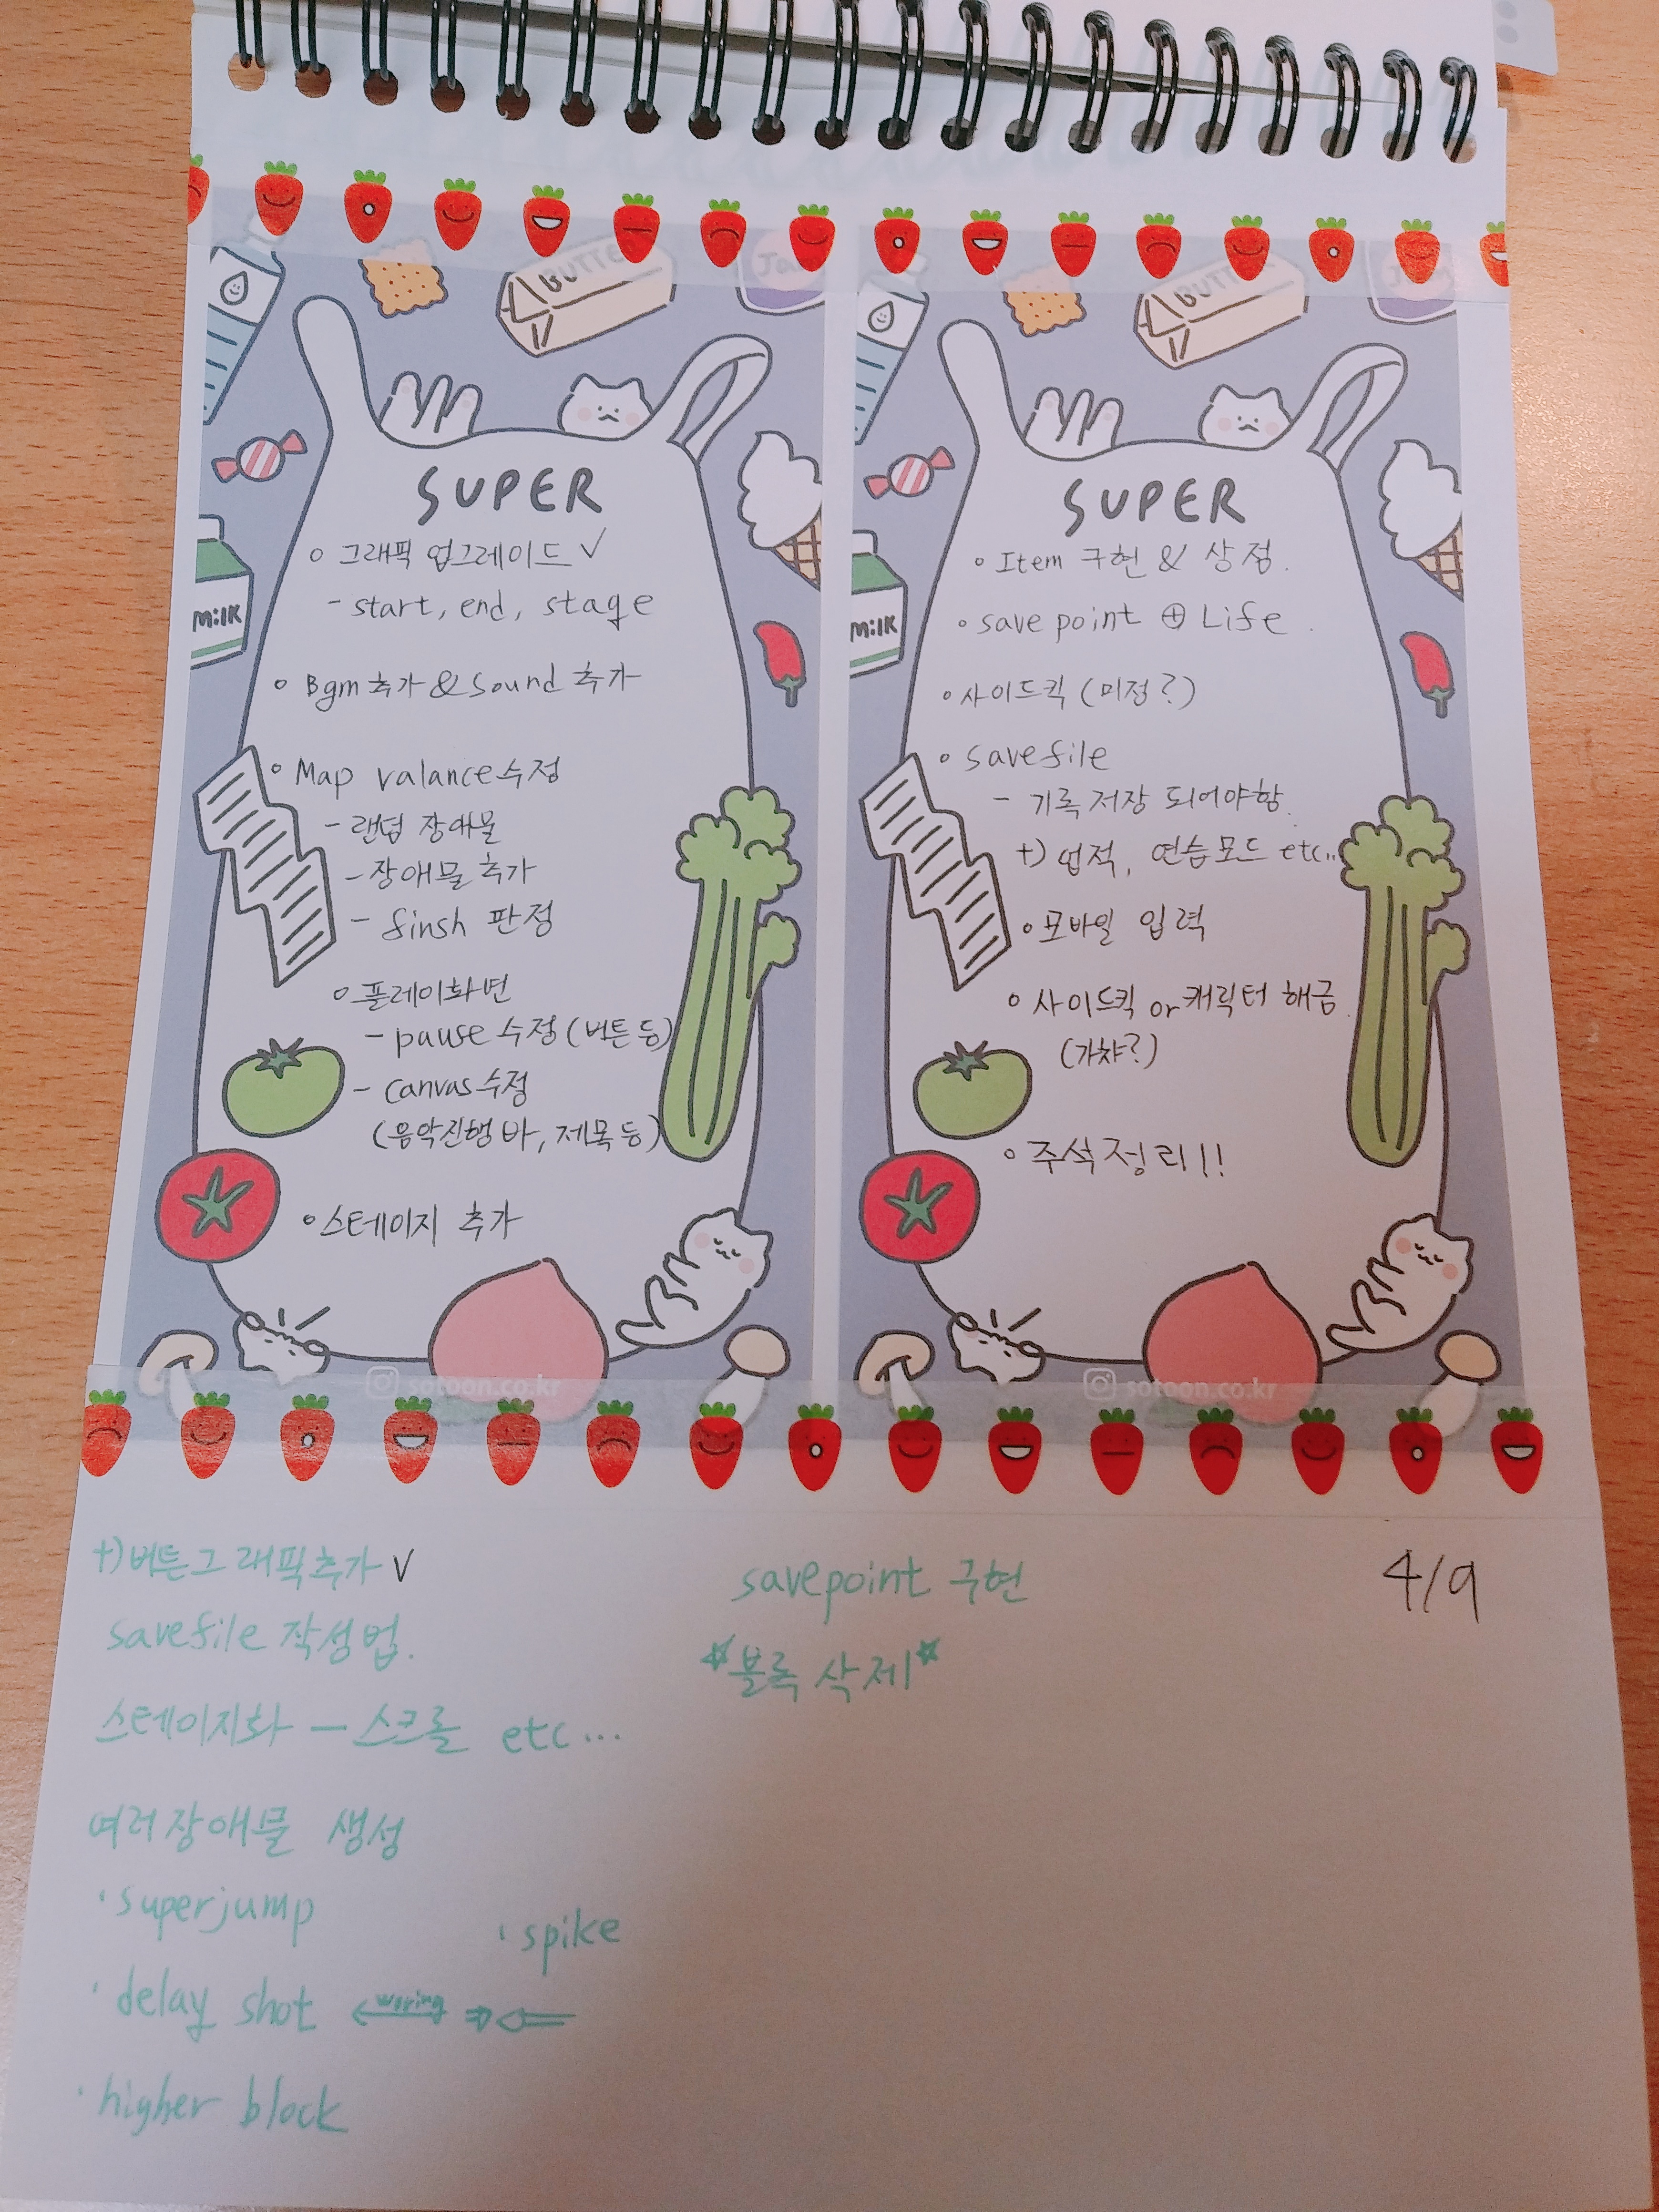 BUTTE
Jam
SUPER
○ 그래픽 업그레이드 ✓
- start, end, stage
○ Bgm 추가 & Sound 추가
○ Map valance 수정
- 랜덤 장애물
- 장애물 추가
- finsh 판정
○ 플레이화면
- pause 수정 (버튼 등)
- canvas 수정
(음악진행 바, 제목 등)
○ 스테이지 추가
MilK
sotoon.co.kr
BUTTE
SUPER
○ Item 구현 & 상점.
○ save point ⊕ Life.
○ 사이드킥 (미정?)
○ savefile
- 기록 저장 되어야함.
+) 업적, 연습모드 etc..
○ 모바일 입력
○ 사이드킥 or 캐릭터 해금.
(가챠?)
○ 주석정리!!
MilK
sotoon.co.kr
+) 버튼그래픽추가 ✓
savefile 작성법.
스테이지화 — 스크롤 etc...
여러장애물 생성
· superjump
· spike
· delay shot
woring
· higher block
savepoint 구현
☆블록 삭제☆
4/9